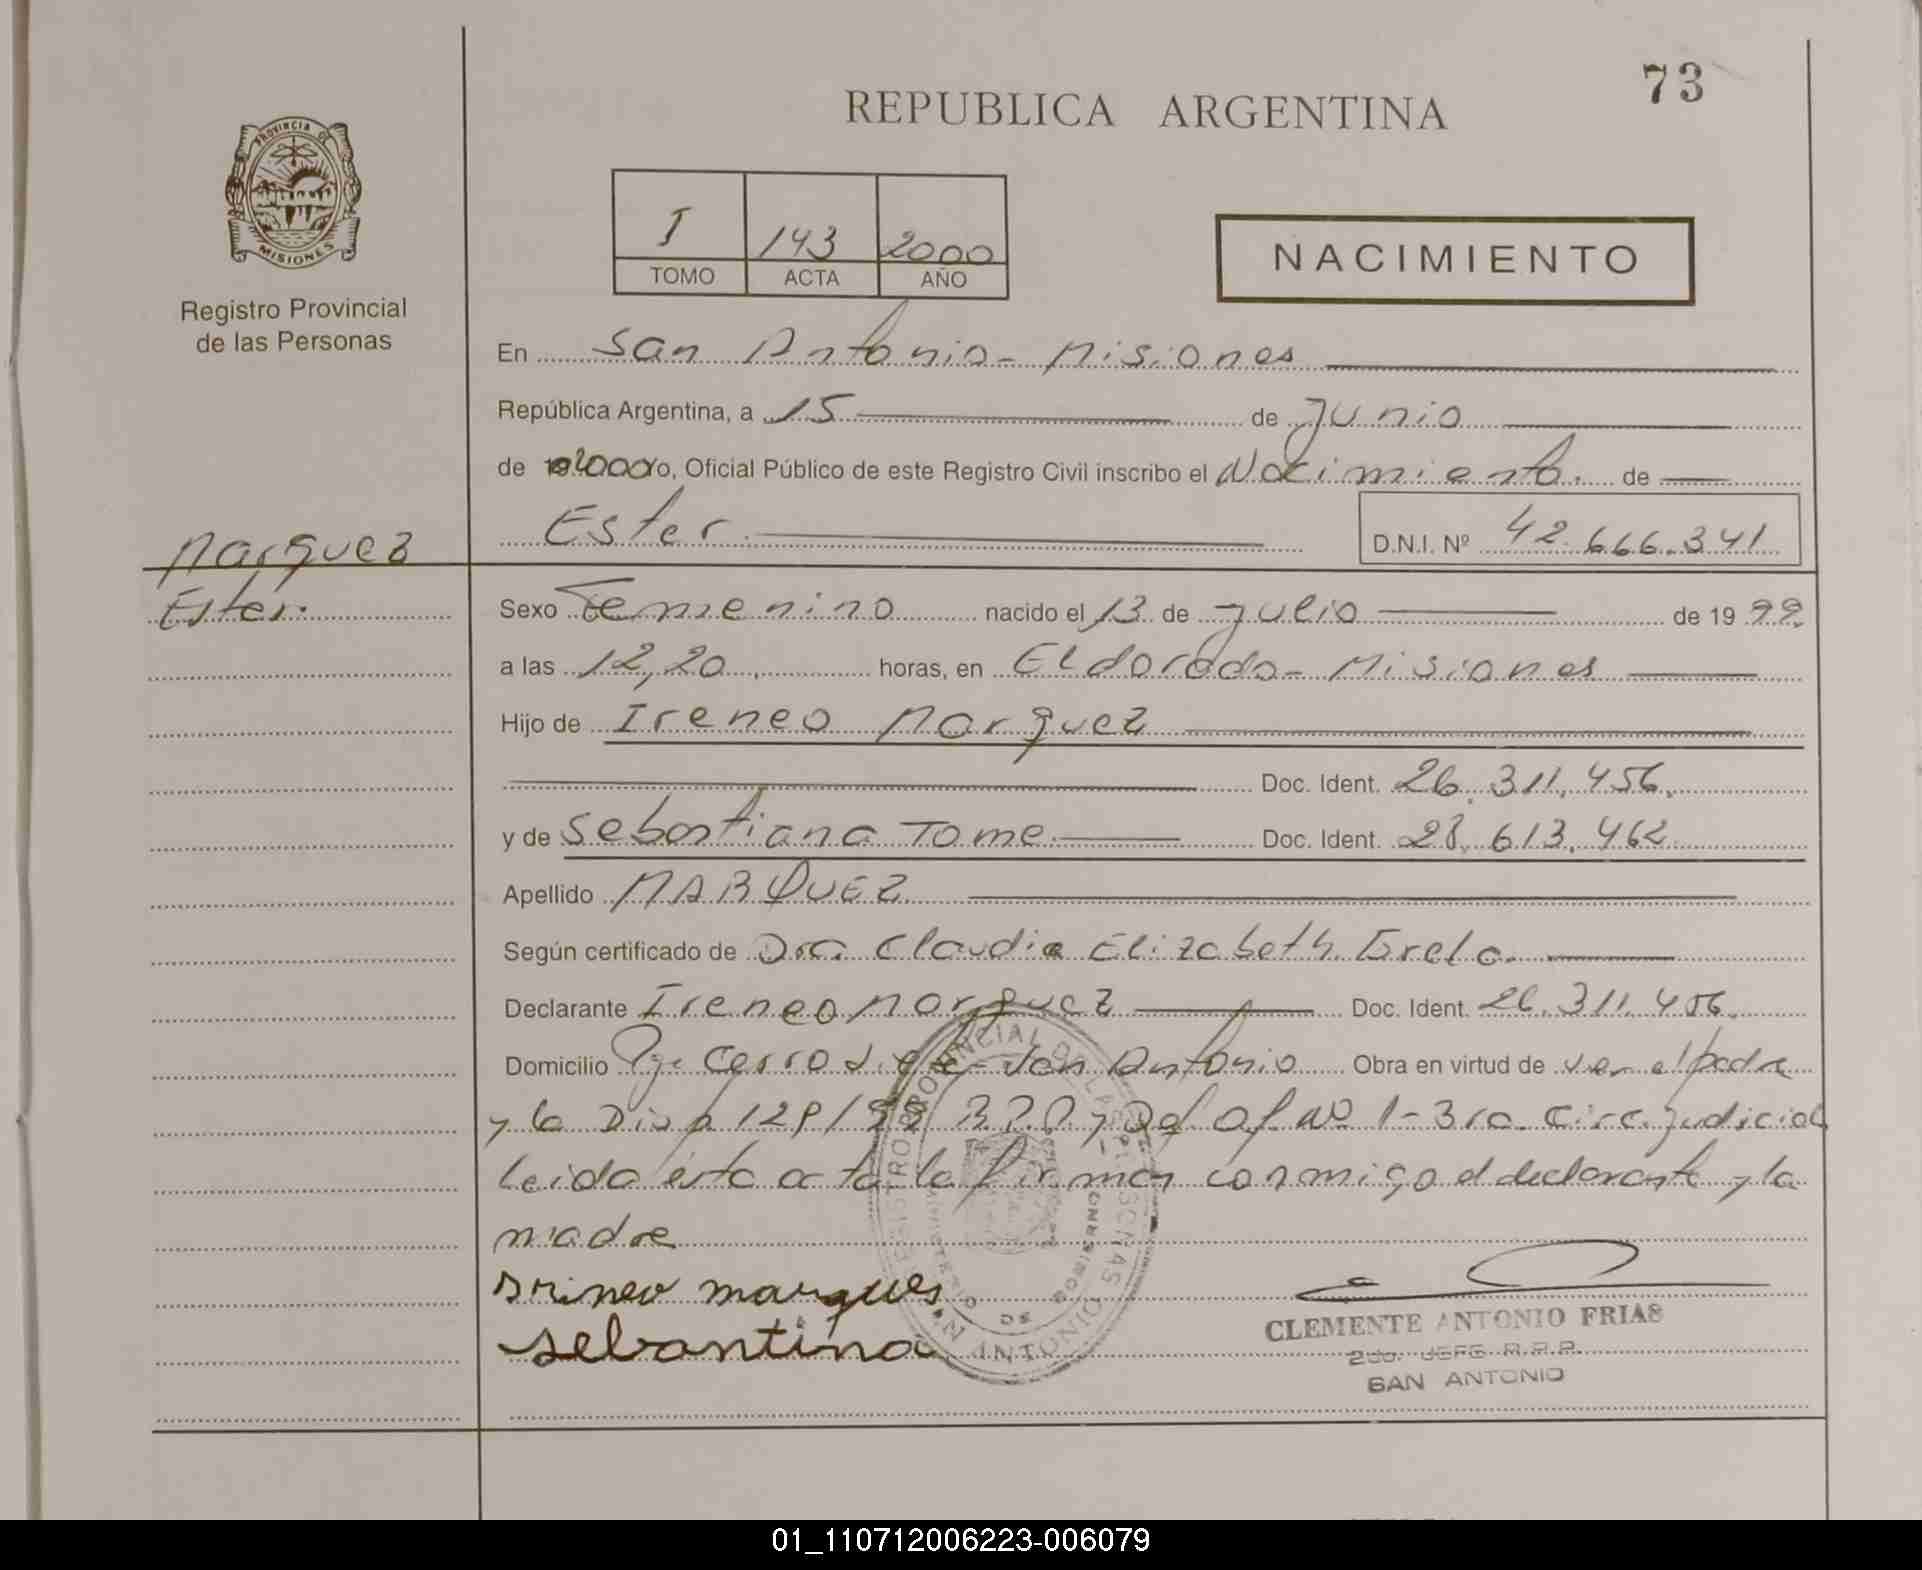 73
REPUBLICA ARGENTINA
PROVINCIA DE
MISIONES
Registro Provincial
de las Personas
I 143 2000
TOMO ACTA AÑO
NACIMIENTO
En San Antonio - Misiones
República Argentina, a 15 de Junio
de 2000 yo, Oficial Público de este Registro Civil inscribo el Nacimiento. de
Ester. D.N.I. Nº 42.666.341
Marquez
Ester.
Sexo Femenino nacido el 13 de Julio de 19 99.
a las 12,20 horas, en Eldorado - Misiones
Hijo de Ireneo Marquez
Doc. Ident. 26.311.456.
y de Sebastiana Tome. Doc. Ident. 28.613.462
Apellido MARQUEZ
Según certificado de Dra. Claudia Elizabeth
Declarante Ireneo Marquez Doc. Ident. 26.311.456.
Domicilio Cerro San Antonio Obra en virtud de ser el padre
y la Disp 129/99 R.P.P. y Def. Of. Nº 1 - 3ra. Circ. Judicial
leida ésta acta la firman conmigo el declarante y la
madre
marques
sebantina
CLEMENTE ANTONIO FRIAS
2do. JEFE R.P.P.
SAN ANTONIO
01_110712006223-006079